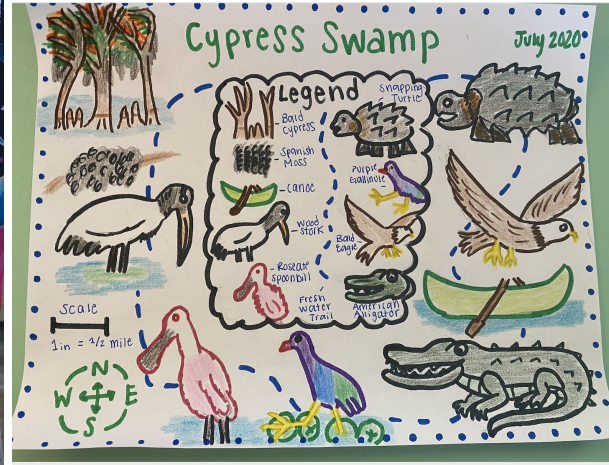 Cypress Swamp
July 2020
Legend
Bald
Cypress
Spanish
Moss
Canoe
Wood
Stork
Roseate
Spoonbill
Fresh
Water
Trail
Snapping
Turtle
Purple
Gallinule
Bald
Eagle
American
Alligator
Scale
1 in = 1/2 mile
N
W E
S